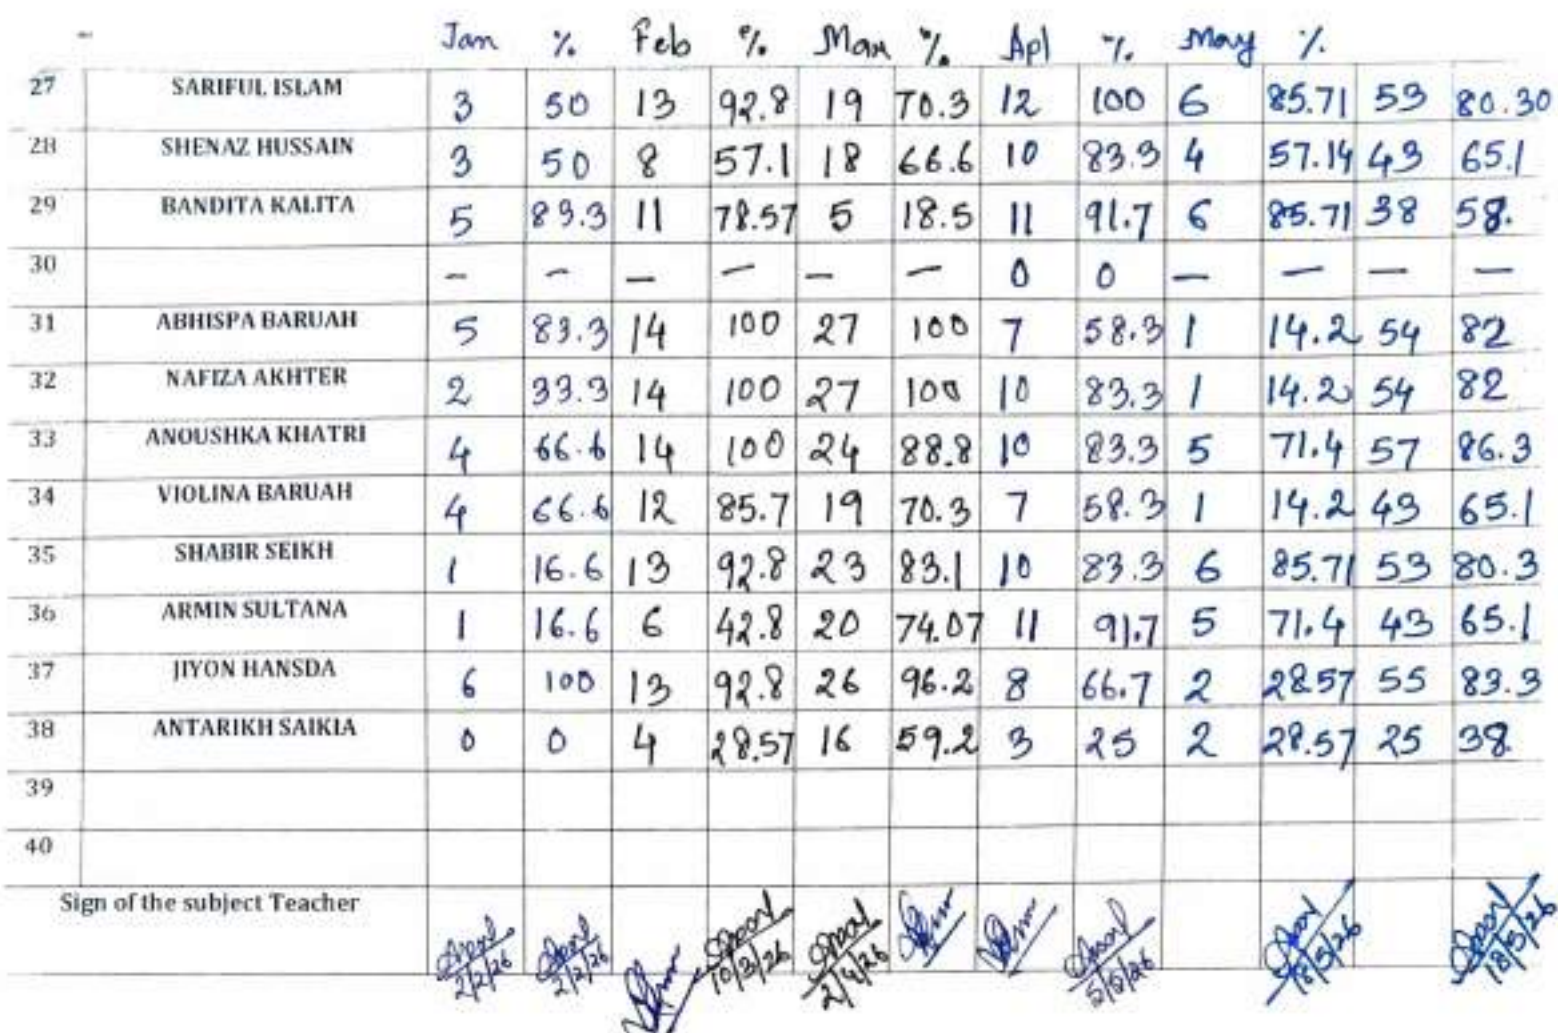 Jan % Feb % Mar % Apl % May %
27 SARIFUL ISLAM 3 50 13 92.8 19 70.3 12 100 6 85.71 53 80.30
28 SHENAZ HUSSAIN 3 50 8 57.1 18 66.6 10 83.3 4 57.14 43 65.1
29 BANDITA KALITA 5 83.3 11 78.57 5 18.5 11 91.7 6 85.71 38 58.
30 – – – – – – 0 0 – – – –
31 ABHISPA BARUAH 5 83.3 14 100 27 100 7 58.3 1 14.2 54 82
32 NAFIZA AKHTER 2 33.3 14 100 27 100 10 83.3 1 14.2 54 82
33 ANOUSHKA KHATRI 4 66.6 14 100 24 88.8 10 83.3 5 71.4 57 86.3
34 VIOLINA BARUAH 4 66.6 12 85.7 19 70.3 7 58.3 1 14.2 43 65.1
35 SHABIR SEIKH 1 16.6 13 92.8 23 83.1 10 83.3 6 85.71 53 80.3
36 ARMIN SULTANA 1 16.6 6 42.8 20 74.07 11 91.7 5 71.4 43 65.1
37 JIYON HANSDA 6 100 13 92.8 26 96.2 8 66.7 2 28.57 55 83.3
38 ANTARIKH SAIKIA 0 0 4 28.57 16 59.2 3 25 2 28.57 25 38
39
40
Sign of the subject Teacher
2/2/26 2/2/26 10/3/26 2/4/26 5/5/26 18/5/26 18/5/26